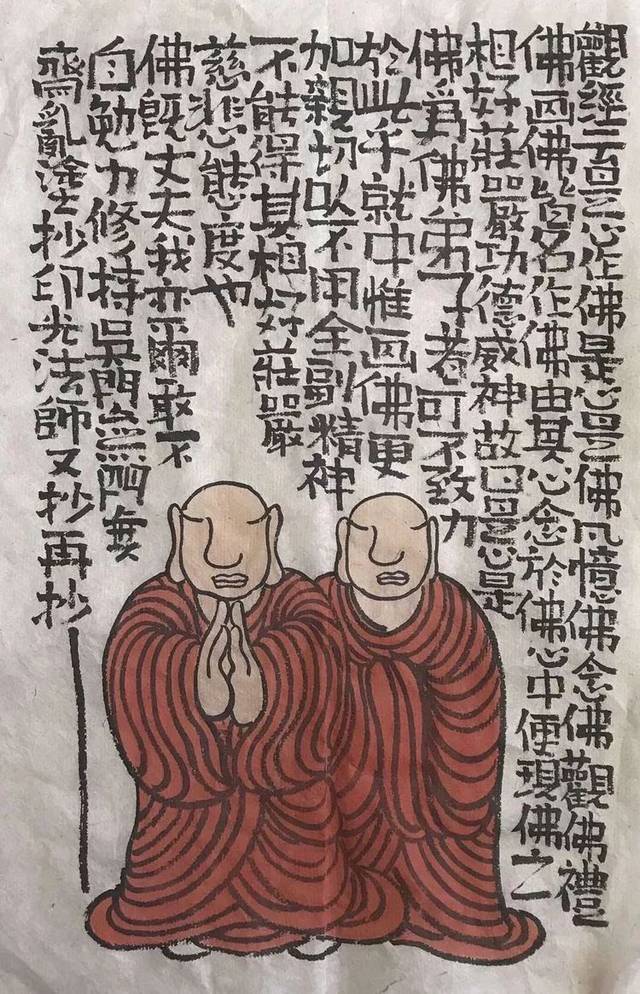 觀經云是心作佛是心是佛凡憶佛念佛觀佛禮
佛画佛皆名作佛由其心念於佛心中便現佛之
相好莊嚴功德威神故曰是心是
佛爲佛弟子者可不致力
於此乎就中惟画佛更
加親切以不用全副精神
不能得其相好莊嚴
慈悲態度也
佛既丈夫我亦爾敢不
自勉力修持吳門無門無
齋亂塗抄印光法師又抄再抄